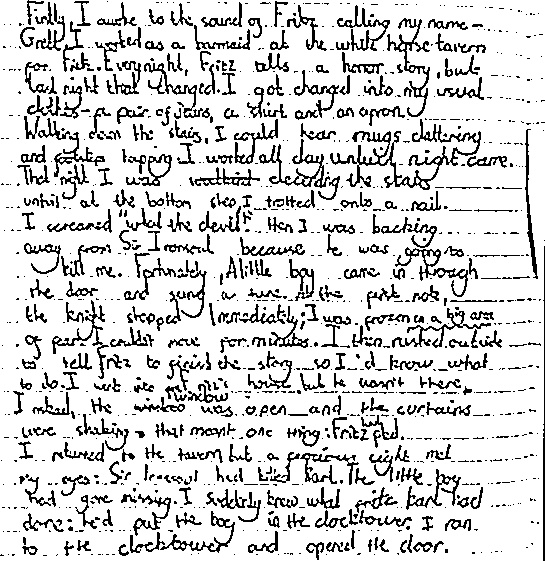 Firstly, I awoke to the sound of Fritz calling my name -
Gretl. I worked as a barmaid at the white horse tavern
for Fritz. Every night, Fritz tells a horror story, but
last night that changed. I got changed into my usual
clothes - a pair of jeans, a shirt and an apron.
Walking down the stairs, I could hear mugs clattering
and tapping. I worked all day until night came.
That night I was descending the stairs
until at the bottom step, I trotted onto a nail.
I screamed "what the devil!" then I was backing
away from Sir Ironsoul because he was going to
kill me. Fortunately, A little boy came in through
the door and sung a tune. At the first note,
the knight stopped Immediately; I was frozen in a big
of fear I couldnt move for minutes. I then rushed outside
to tell Fritz to finish the story so I'd know what
to do. I went into house but he wasn't there.
Instead, the window was open and the curtains
were shaking - that meant one thing: Fritz had fled.
I returned to the tavern but a ferocious sight met
my eyes: Sir Ironsoul had killed Karl. The little boy
had gone missing. I suddenly knew what Karl had
done: he'd put the boy in the clocktower. I ran
to the clocktower and opened the door.